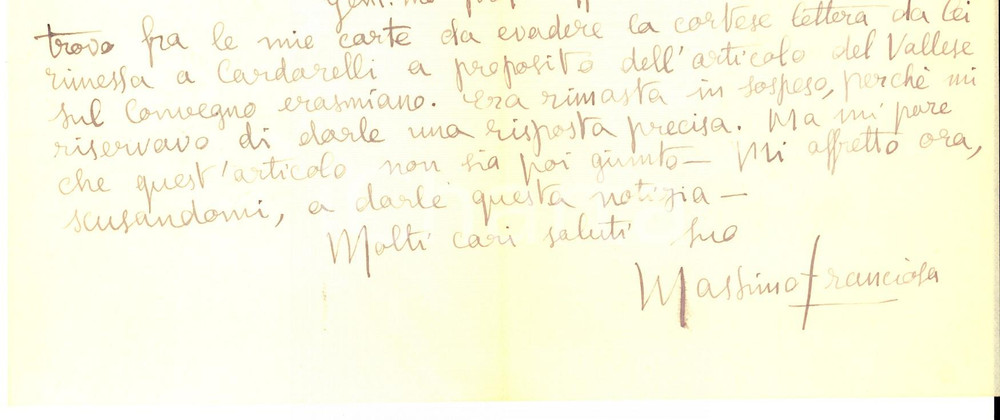 trovo fra le mie carte da evadere la cortese lettera da lei
rimessa a Cardarelli a proposito dell'articolo del Vallese
sul Convegno erasmiano. Era rimasta in sospeso, perchè mi
riservavo di darle una risposta precisa. Ma mi pare
che quest'articolo non sia poi giunto – Mi affretto ora,
scusandomi, a darle questa notizia –
Molti cari saluti suo
Massimo Franciosa